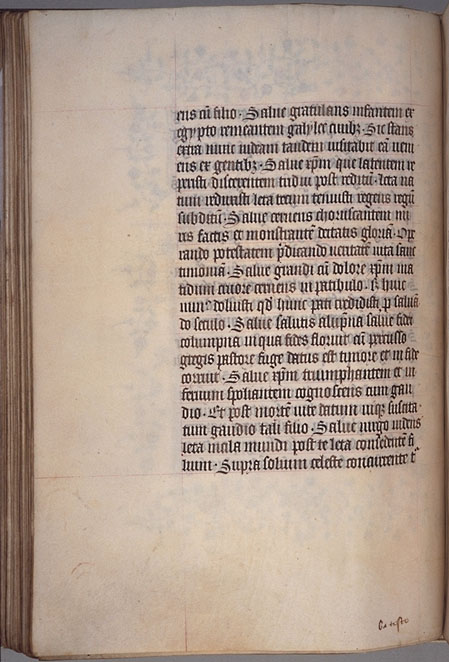 ens cū filio · Salue gratulans infantem ex
egypto remeantem galylee ciuibꝫ · Sic stans
extra nunc iudeam tandem uisitabit eā ueni
ens ex gentibꝫ · Salue xp̄m que latentem re
peristi discernentem triduū post reditū · leta na
tum reduxisti leta tecum tenuisti regens regū
subditū · Salue cernens choruscantem mi
ris factis et monstrantē deitatis gloriā · Ope
rando potestatem p̄dicando ueritatē uita sanc
timoniā · Salue grandi cū dolore xp̄m ma
didum cruore cernens in patibulo · hunc
doluisti qd̄ hunc pati credidisti p saluā
do seculo · Salue salutis alūpna salue fidei
columpna in qua fides floruit cū percusso
gregis pastore fuge datus est timore et in fide
corruit · Salue xp̄m triumphantem et in
fernum spoliantem cognoscens cum gau
dio · Et post mortē uite datum uisꝫ suscita
tum gaudio tali filio · Salue uirgo uidens
leta mala mundi post te leta consedentē fi
lium · Supra solium celeste concurrente